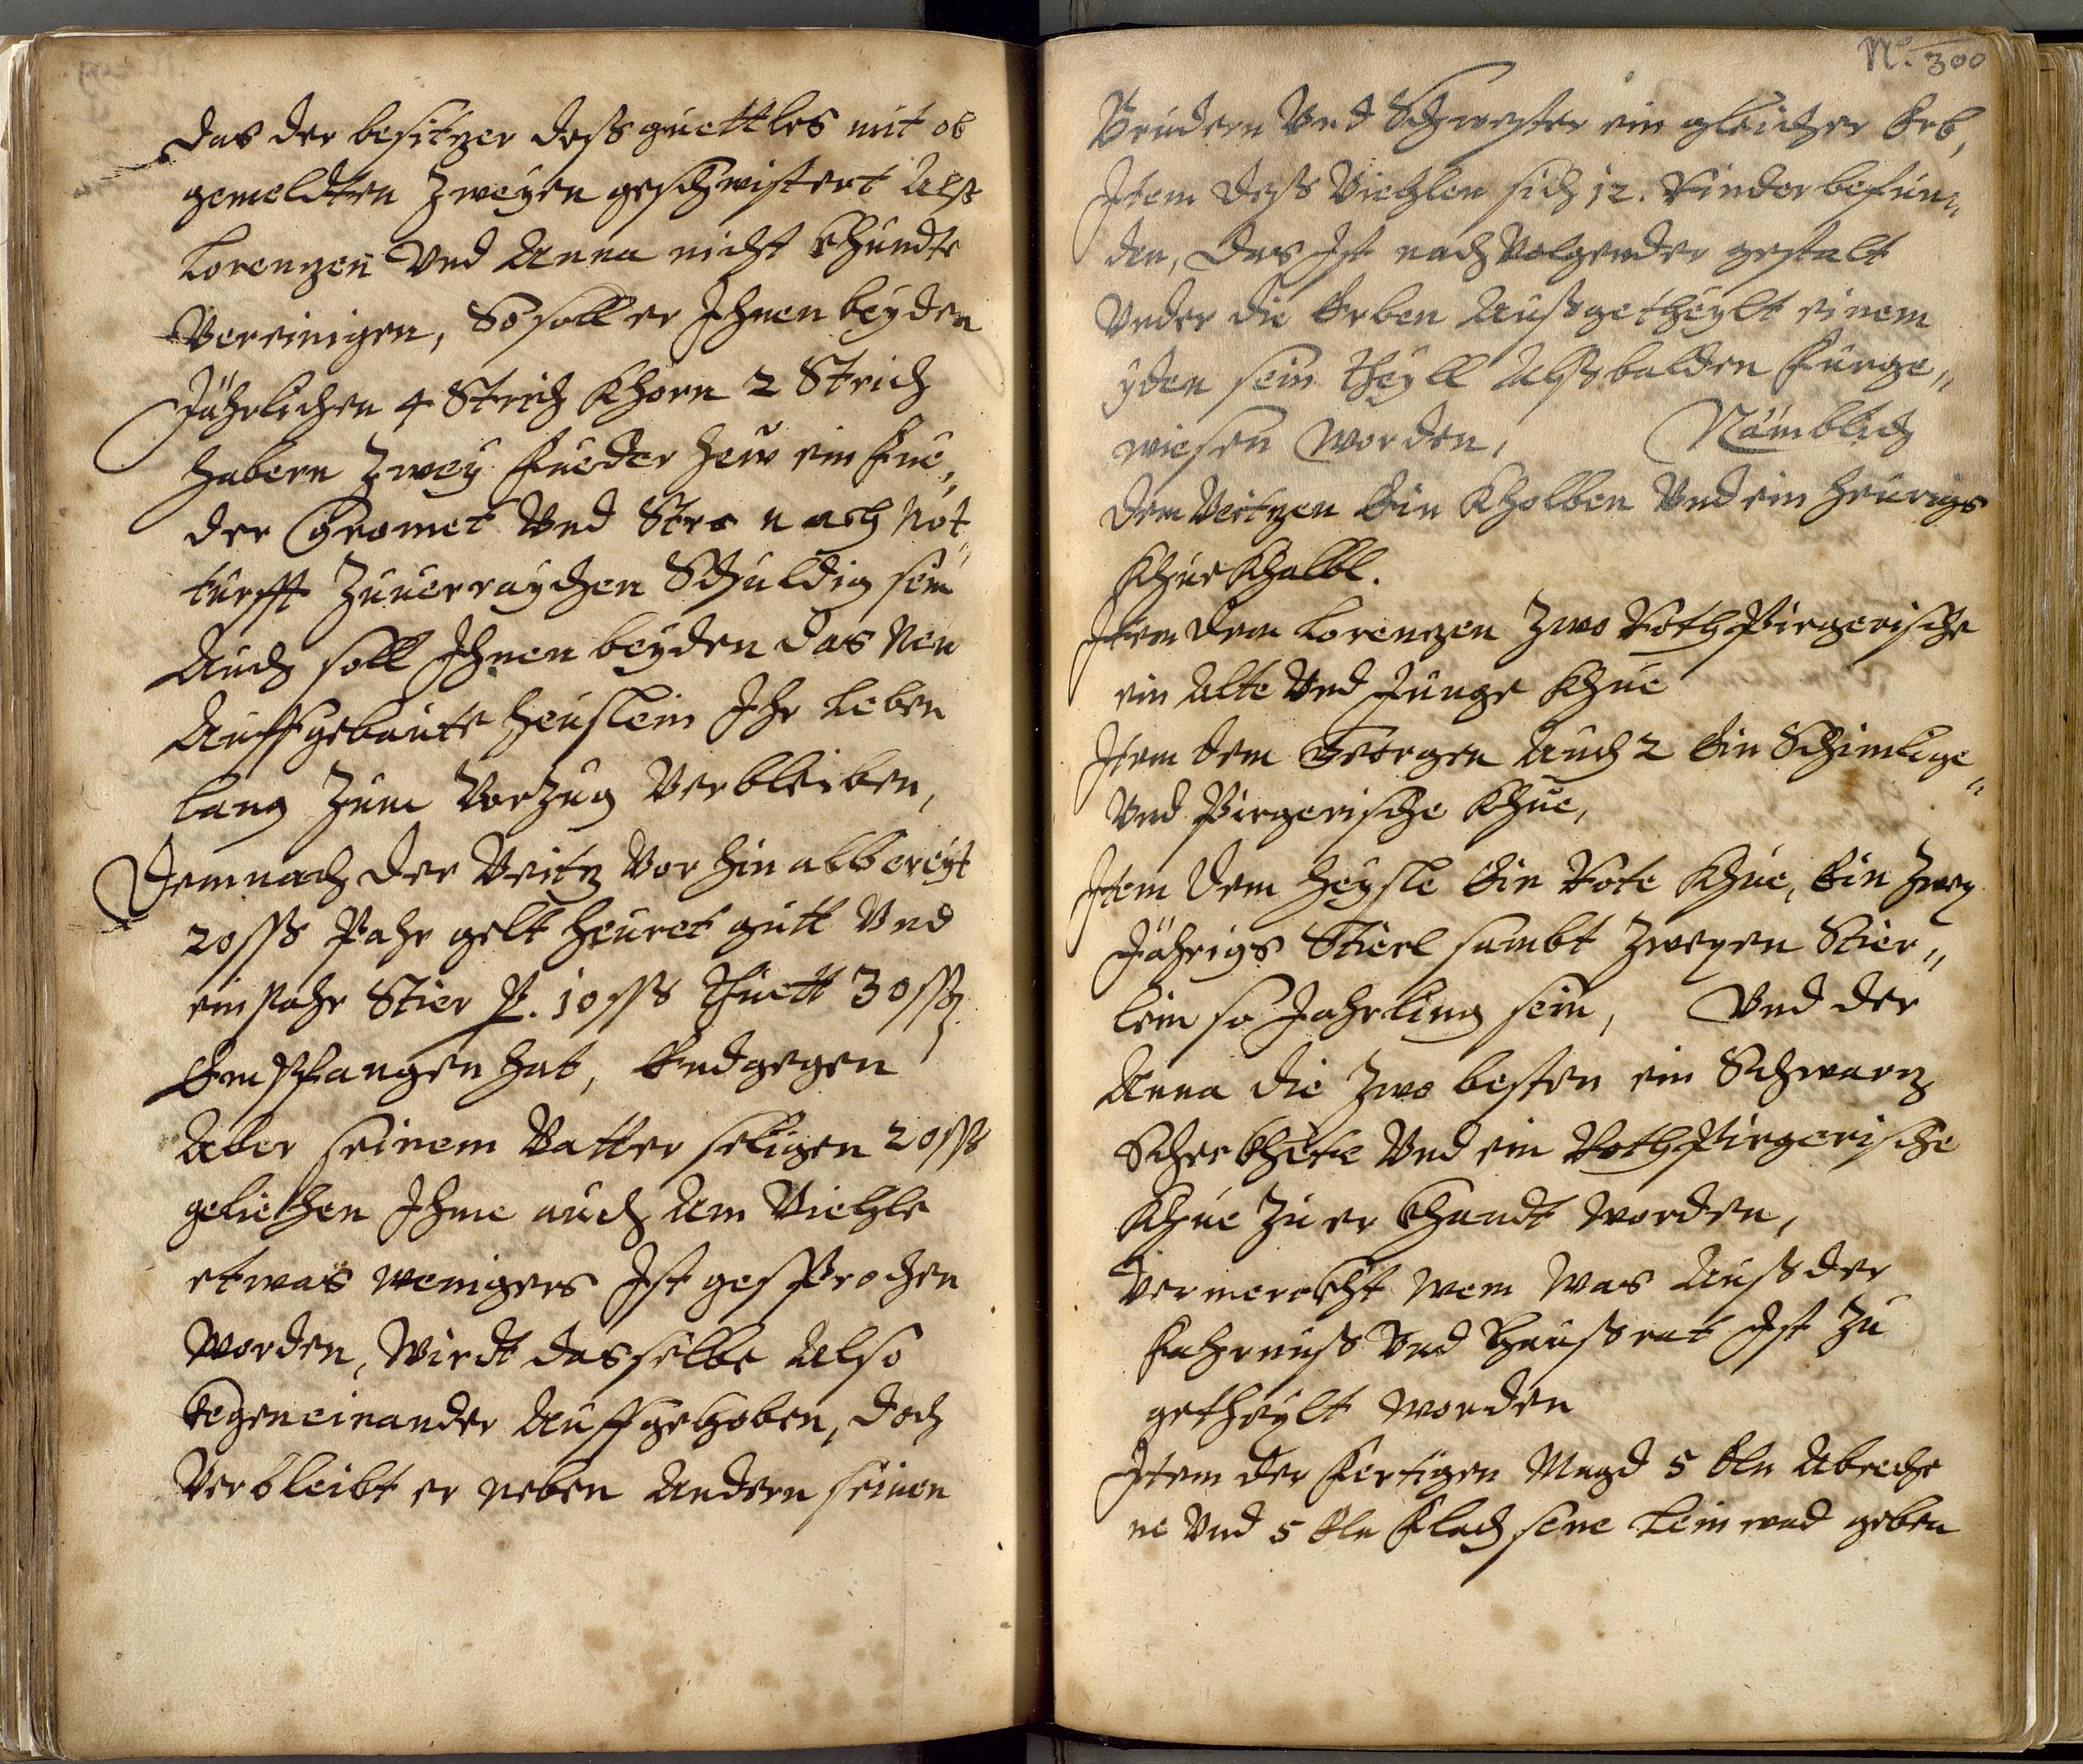 das der besitzer deß guettles mit ob
gemeldten Zweyen geschwistert Alß
Lorenzen Und Anna nicht khundte
Vereinigen, So soll er Ihnen beyden
Jährlichen 4 Strich Khorn 2 Strich
habern Zwey Fueder hew ein Fue„
der Gromet Und Stro nach Not„
turfft Zuuerraychen Schuldig sein
Auch soll Ihnen beyden das Neu
Auffgebaute heuslein Ihr Leben
lang Zum Vorzug Verbleiben,
Demnach der Veitz Vorhin albereyt
20 ß Pahr gelt heuret gutt Und
ein Pahr Stier P. 10 ß thuett 30 ß
Empfangen hat, Endgegen
Aber seinem Vatter seligen 20 ß
geliehen Ihme auch Am Viechle
etwas wenigers Ist gesprochen
worden, Wirdt dasselbe Also
gegeneinander Auffgehoben, doch
Verbleibt er neben Andern seinen
N.º 300
Brüdern Und Schwester ein gleicher Erb,
Item deß Viechlen sich 12. Rinder befun„
den, das Ist nach Volgender gestalt
Under die Erben Außgetheylt einem
yden sein theyll Alßbalden Fürge„
wiesen worden, Nämblich
dem Veitzen Ein Kholben Und ein heurigs
Khue Khalbl.
Item dem Lorenzen Zwo Roth Pirgerische
ein Alte Und Junge Khue
Item dem Georgen Auch 2 Ein Schimlige„
Und Pirgerische Khue,
Item dem Heysle Ein Rote Khue, Ein Zwey
Jährigs Stierl sambt Zweyen Stier„
lein so Jahrling sein, Und der
Anna die Zwo besten ein Schwarz
Schekhete Und ein Roth Pirgerische
Khue Zuerkhandt worden,
Vermerckht wem Was Auß der
Fahrnuß Und Haußrat Ist Zu
getheylt worden
Item der Fertigen Magd 5 Eln Abreche
ne Und 5 Eln Flachsene Leinwad geben